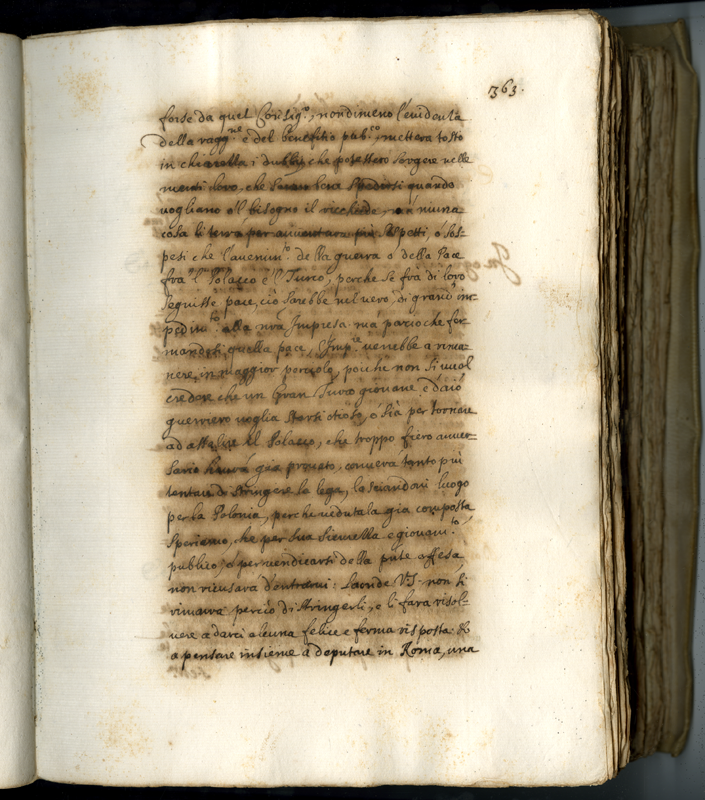 363.
forse da quel Consig.º, nondimeno l'euidenza
della ragg.ne e del benefitio pub.co, metteua tosto
in chiarezza i dubbij, che potessero sorgere nelle
menti loro, che Sanno bene Spedirsi quando
uogliano o'l bisogno il ricchiede, nè niuna
cosa li terrà per auuentura più Sospetti, ò Sos-
pesi che l'auenim.to della guerra ò della Pace
frà 'l Polacco e 'l Turco, perche se frà di loro
Seguisse pace, ciò Sarebbe nel uero, di grand'im-
pedim.to alla nrã Impresa. mà perciò che fer-
mandosi quella pace, l'Imp.re uenebbe a rima-
nere in maggior pericolo, poiche non Si uuol
credere che un Gran Turco giouane e
guerriero uoglia Starsi otioso, ò Sia per tornare
ad assalire il Polacco, che troppo fiero auuer-
Sario haurà già prouato, conuerà tanto più
tentare di Stringere la lega, lasciandoui luogo
per la Polonia, perche uedutala gia composta
Speriamo, che per Sua Sienezza e giouam.to
publico, ò per uendicarsi della offesa
non ricusara d'entrarui: Laonde V.S. non Si
rimarra perciò di Stringerli, e li fara risol-
uere a darci alcuna felice e ferma risposta &
a pensare insieme à deputare in Roma, una